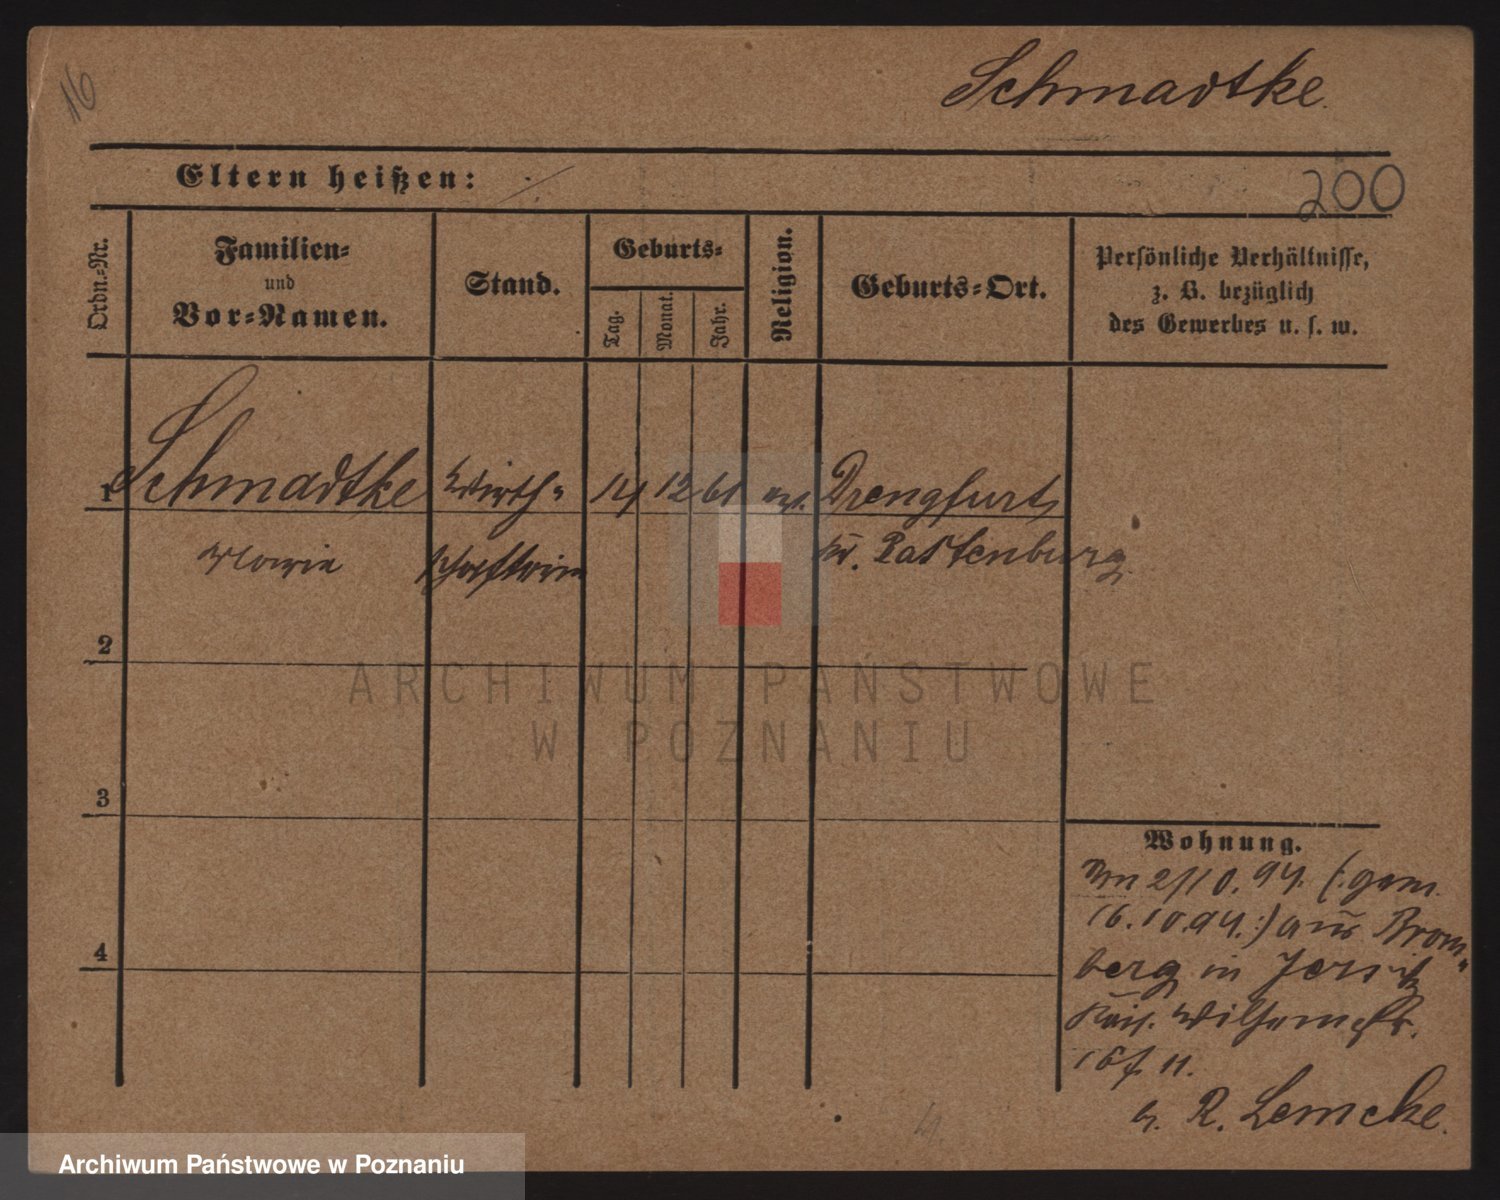 16
Schmadtke.
Eltern heißen:
200
Ordn.-Nr.
Familien- und Vor-Namen.
Stand.
Geburts-
Tag.
Monat.
Jahr.
Religion.
Geburts-Ort.
Persönliche Verhältnisse,
z. B. bezüglich
des Gewerbes u. s. w.
1 Schmadtke Wirth- 14 12 61 evgl. Drengfurt
Marie schafterin Kr. Rastenburg
2
ARCHIWUM PAŃSTWOWE
W POZNANIU
3
4
Wohnung.
Am 2/10.94. (:gem.
16.10.94.:) aus Brom-
berg in Jersitz
Kais. Wilhelmstr.
11.
R. Lemcke.
Archiwum Państwowe w Poznaniu